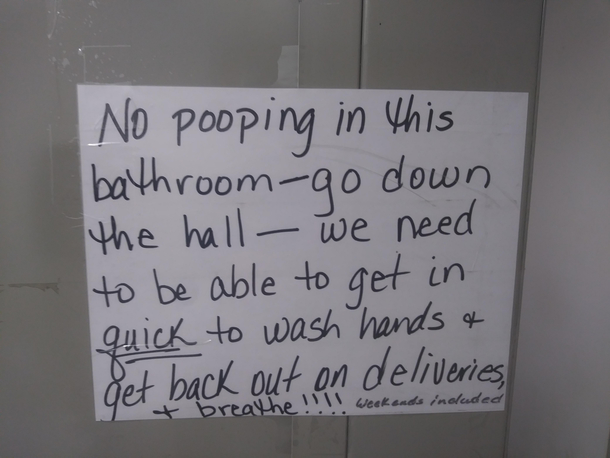 No pooping in this
bathroom—go down
the hall — we need
to be able to get in
quick to wash hands &
get back out on deliveries,
+ breathe!!!! Weekends included